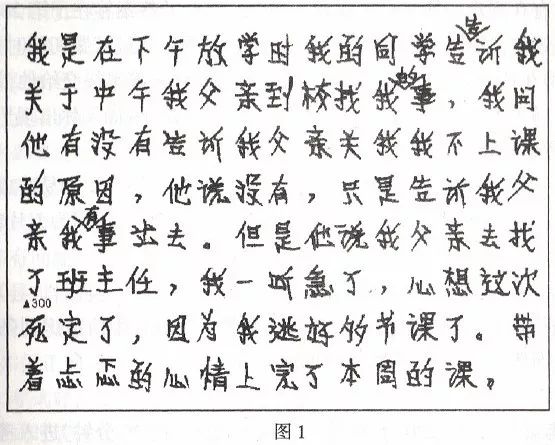 我是在下午放学时我的同学告诉我
关于中午我父亲到校找我的事，我问
他有没有告诉我父亲关我我不上课
的原因，他说没有，只是告诉我父
亲我有事出去。但是他说我父亲去找
了班主任，我一听急了，心想这次
▲300
死定了，因为我逃好多节课了。带
着忐忑的心情上完了本周的课。
图1